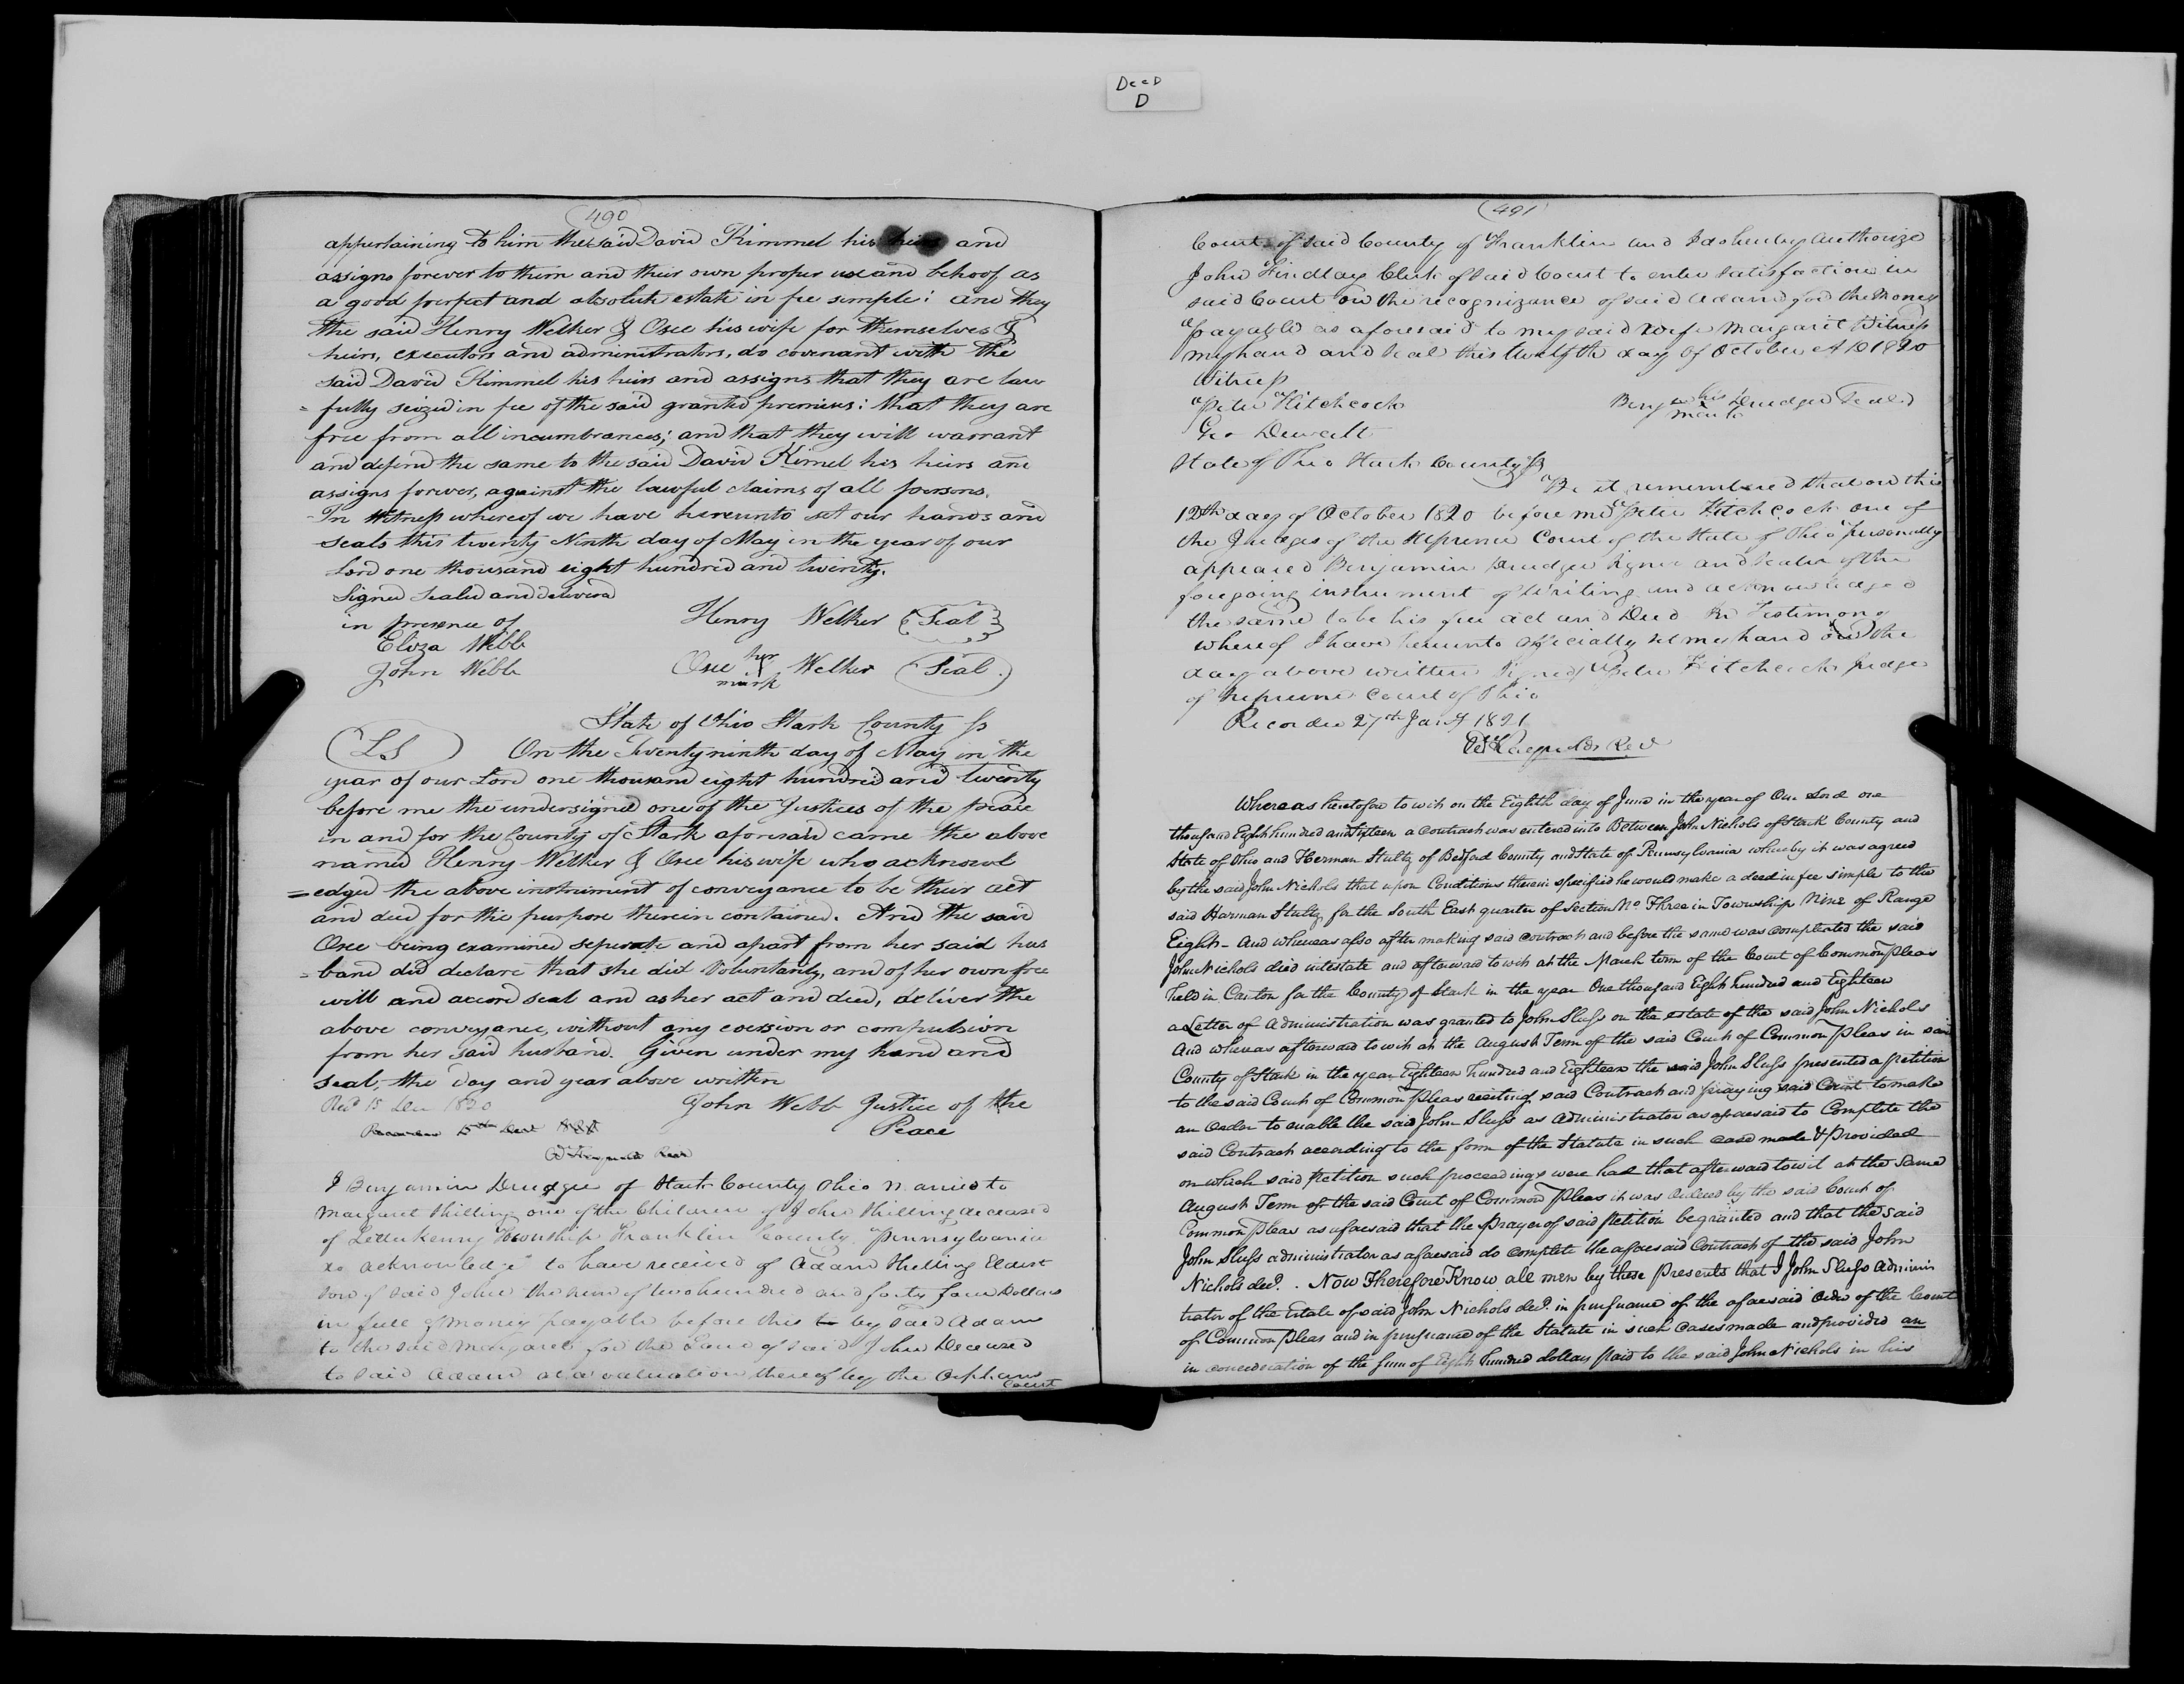 Deed
D
490
appertaining to him the said David Kimmel his heirs and
assigns forever to them and their own proper use and behoof as
a good perfect and absolute estate in fee simple: and they
the said Henry Welker & Osee his wife for themselves &
heirs, executors and administrators, do covenant with the
said David Kimmel his heirs and assigns that they are law
= fully seized in fee of the said granted premises: that they are
free from all incumbrances; and that they will warrant
and defend the same to the said David Kimel his heirs and
assigns forever, against the lawful claims of all persons.
In Witness whereof we have hereunto set our hands and
seals this twenty Ninth day of May in the year of our
Lord one thousand eight hundred and twenty.
Signed Sealed and delivered
in presence of
Henry Welker (Seal)
Eliza Webb
John Webb
Osee her mark Welker (Seal)
State of Ohio Stark County ss
(LS) On the Twenty ninth day of May in the
year of our Lord one thousand eight hundred and twenty
before me the undersigned one of the Justices of the peace
in and for the County of Stark aforesaid came the above
named Henry Welker & Osee his wife who acknowl
=edged the above instrument of conveyance to be their act
and deed for the purpose therein contained. And the said
Osee being examined seperate and apart from her said hus
= band did declare that she did Voluntarily, and of her own free
will and accord seal and as her act and deed, deliver the
above conveyance, without any coersion or compulsion
from her said husband. Given under my hand and
seal, the day and year above written
Recd 15 Dec 1820
John Webb Justice of the
Peace
I Benjamin Drudge of Stark County Ohio married to
Margaret Shilling one of the Children of John Shilling deceased
of Letterkenny Township Franklin County Pennsylvania
do acknowledge to have received of Adam Shilling Eldest
son of said John the sum of two hundred and forty four Dollars
in full of money payable before this by said Adam
to the said Margaret for the Land of said John Deceased
to said Adam at a valuation thereof by the Orphans
Court
491
Court of said County of Franklin and I do hereby Authorize
John Findlay Clerk of said Court to enter satisfaction in
said Court on the recognizance of said Adam for the money
payable as aforesaid to my said wife Margaret Witness
my hand and seal this twelfth day of October AD 1820
Witness
Peter Hitchcock
Benjamin his mark Drudge Seal
Geo Dewalt
State of Ohio Stark County ss
Be it remembered that on this
12th day of October 1820 before me Peter Hitchcock one of
the Judges of the Supreme Court of the State of Ohio personally
appeared Benjamin Drudge signer and sealer of the
foregoing instrument of Writing and acknowledged
the same to be his free act and Deed In Testimony
whereof I have hereunto officially set my hand and the
day above written Signed Peter Hitchcock Judge
of Supreme Court of Ohio
Recorded 27th Jany 1821
Wm Raynolds Recd
Whereas heretofore to wit on the Eighth day of June in the year of Our Lord one
thousand Eight hundred and Sixteen a contract was entered into Between John Nichols of Stark County and
State of Ohio and Herman Stultz of Bedford County and State of Pennsylvania whereby it was agreed
by the said John Nichols that upon Conditions therein specified he would make a deed in fee simple to the
said Harman Stultz for the South East quarter of Section No Three in Township Nine of Range
Eight - And whereas also after making said contract and before the same was completed the said
John Nichols died intestate and afterward to wit at the March term of the Court of Common Pleas
held in Canton for the County of Stark in the year One thousand Eight hundred and Eighteen
a Letter of Administration was granted to John Sluss on the estate of the said John Nichols
And whereas afterward to wit at the August Term of the said Court of Common Pleas in said
County of Stark in the year Eighteen hundred and Eighteen the said John Sluss presented a petition
to the said Court of Common Pleas reciting said Contract and praying said Court to make
an order to enable the said John Sluss as Administrator as aforesaid to Complete the
said Contract according to the form of the Statute in such case made & provided
on which said petition such proceedings were had that afterward to wit at the same
August Term of the said Court of Common Pleas it was ordered by the said Court of
Common Pleas as aforesaid that the prayer of said petition be granted and that the said
John Sluss administrator as aforesaid do complete the aforesaid Contract of the said John
Nichols decd. Now Therefore Know all men by these Presents that I John Sluss Adminis
trator of the Estate of said John Nichols decd. in pursuance of the aforesaid order of the Court
of Common Pleas and in pursuance of the Statute in such cases made and provided an
in consideration of the sum of Eight hundred dollars paid to the said John Nichols in his